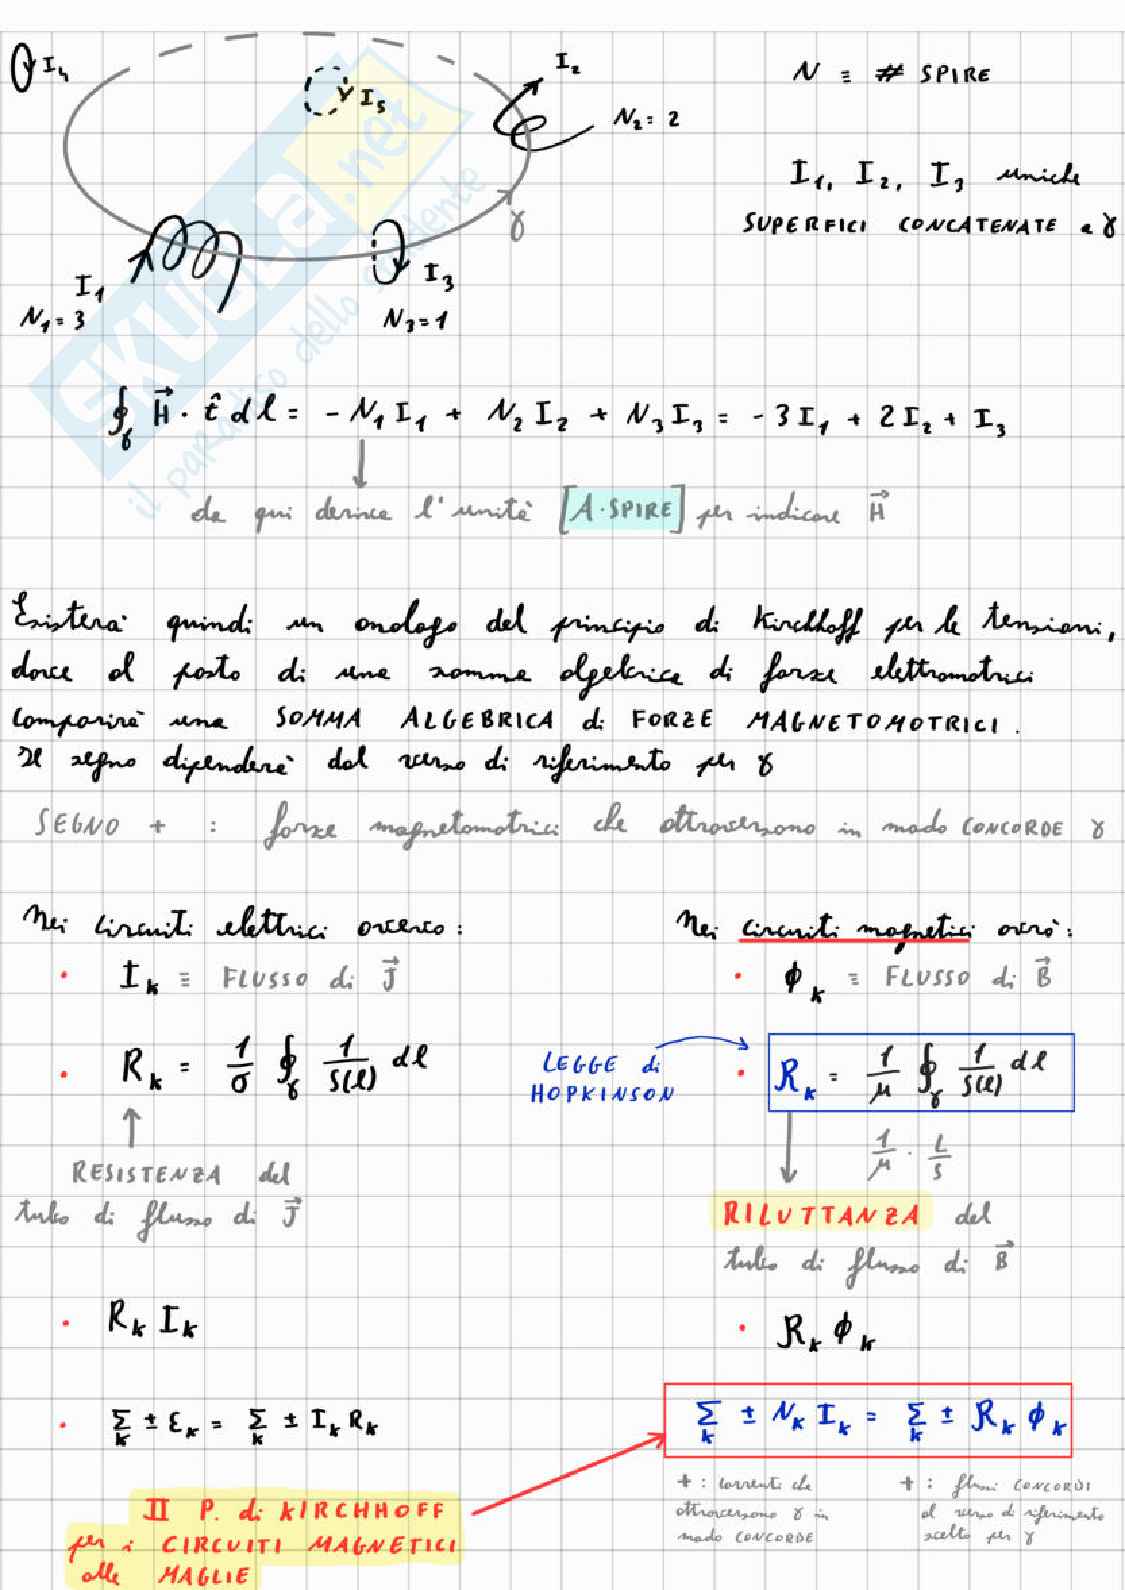 I₄
I₅
I₂
N₂ = 2
N ≡ # SPIRE
I₁, I₂, I₃ uniche
SUPERFICI CONCATENATE a γ
γ
I₁
N₁ = 3
I₃
N₃ = 1
SKUOLA.net
il paradiso dello studente
∮γ H⃗ · t̂ dl = - N₁ I₁ + N₂ I₂ + N₃ I₃ = - 3 I₁ + 2 I₂ + I₃
da qui deriva l'unità [A·SPIRE] per indicare H⃗
Esisterà quindi un analogo del principio di Kirchhoff per le tensioni,
dove al posto di una somma algebrica di forze elettromotrici
comparirà una SOMMA ALGEBRICA di FORZE MAGNETOMOTRICI.
Il segno dipenderà dal verso di riferimento per γ
SEGNO + : forze magnetomotrici che attraversano in modo CONCORDE γ
Nei circuiti elettrici avevo:
• Iₖ ≡ FLUSSO di J⃗
• Rₖ = 1/σ ∮γ 1/S(l) dl
RESISTENZA del
tubo di flusso di J⃗
• Rₖ Iₖ
• Σₖ ± Ɛₖ = Σₖ ± Iₖ Rₖ
II P. di KIRCHHOFF
per i CIRCUITI MAGNETICI
alle MAGLIE
Nei circuiti magnetici avrò:
• ϕₖ ≡ FLUSSO di B⃗
LEGGE di
HOPKINSON
• ℛₖ = 1/μ ∮γ 1/S(l) dl
1/μ · L/S
RILUTTANZA del
tubo di flusso di B⃗
• ℛₖ ϕₖ
Σₖ ± Nₖ Iₖ = Σₖ ± ℛₖ ϕₖ
+ : correnti che
attraversano γ in
modo CONCORDE
+ : flussi CONCORDI
al verso di riferimento
scelto per γ